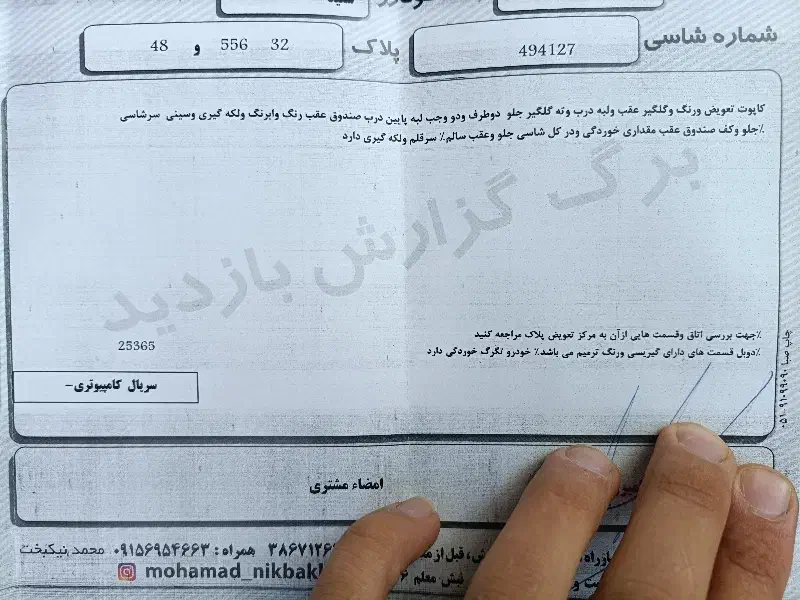 شماره شاسی 494127 پلاک 32 556 و 48
کاپوت تعویض ورنگ وگلگیر عقب ولبه درب وته گلگیر جلو دوطرف ودو وجب لبه پایین درب صندوق عقب رنگ وابرنگ ولکه گیری وسینی سرشاسی
٪جلو وکف صندوق عقب مقداری خوردگی ودر کل شاسی جلو وعقب سالم٪ سرقلم ولکه گیری دارد
برگ گزارش بازدید
٪جهت بررسی اتاق وقسمت هایی ازآن به مرکز تعویض پلاک مراجعه کنید
٪دوبل قسمت های دارای گیریسی ورنگ ترمیم می باشد٪ خودرو تگرگ خوردگی دارد
25365
سریال کامپیوتری-
چاپ صبا ۰۵۱-۹۱۰۹۹۰۹۰
امضاء مشتری
ش، قبل از
همراه: ۰۹۱۵۶۹۵۴۶۶۳ محمد نیکبخت
نبش معلم
mohamad_nikbak